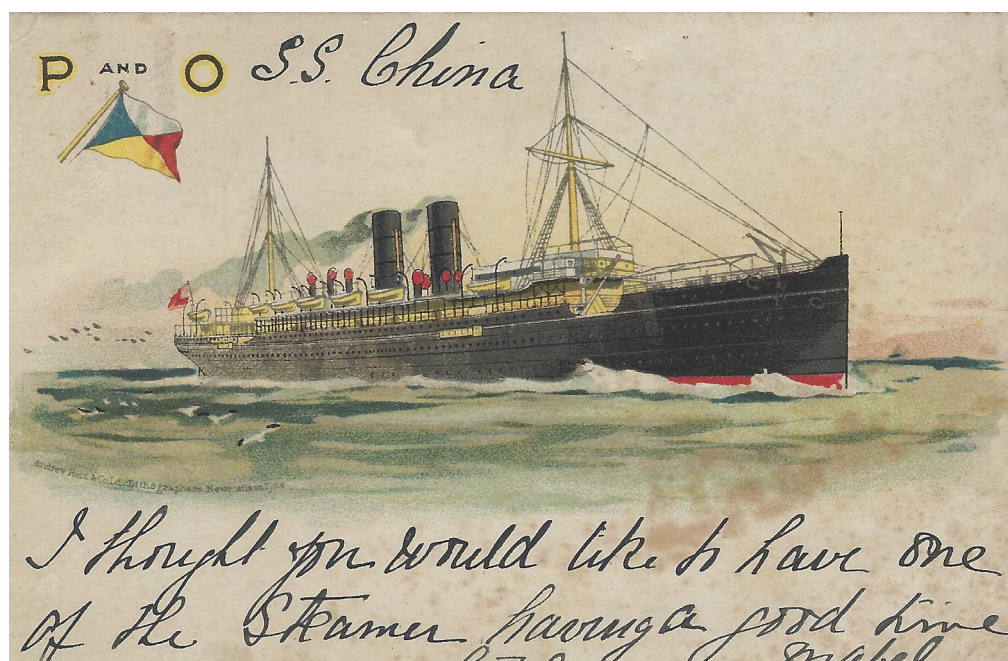 P AND O S.S. China
Andrew Reid & Co Ld. Lithographers Newcastle on Tyne
I thought you would like to have one
of the Steamer having a good time
Mabel